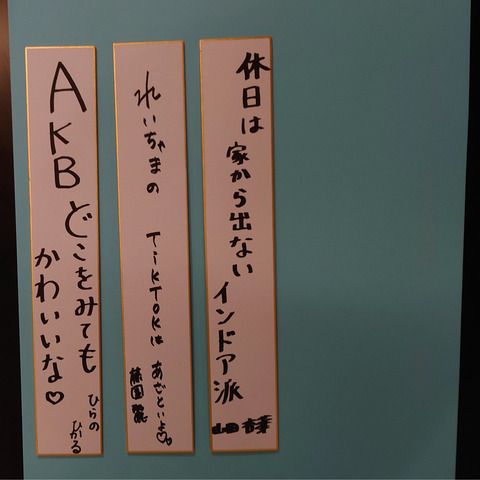 休日は
家から出ない
インドア派
れいちゃまの
TikTokは
あざといよ♡
藤園麗
AKB
どこをみても
かわいいな♡
ひらの
ひかる